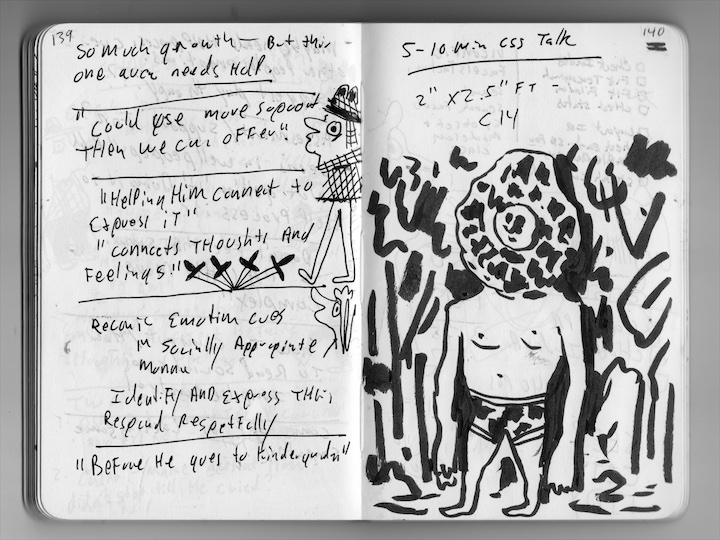 139
So much growth — But this
one area needs Help.
"Could use more support
Then we can offer"
"Helping Him connect to
Express it"
"connects Thoughts And
Feelings"
Emotion cues
in Socially Appropriate
Manner
Identify AND Express Them,
Respond Respectfully
"Before He goes to Kindergarden"
140
5-10 min css Talk
2" x 2.5" FT -
C14